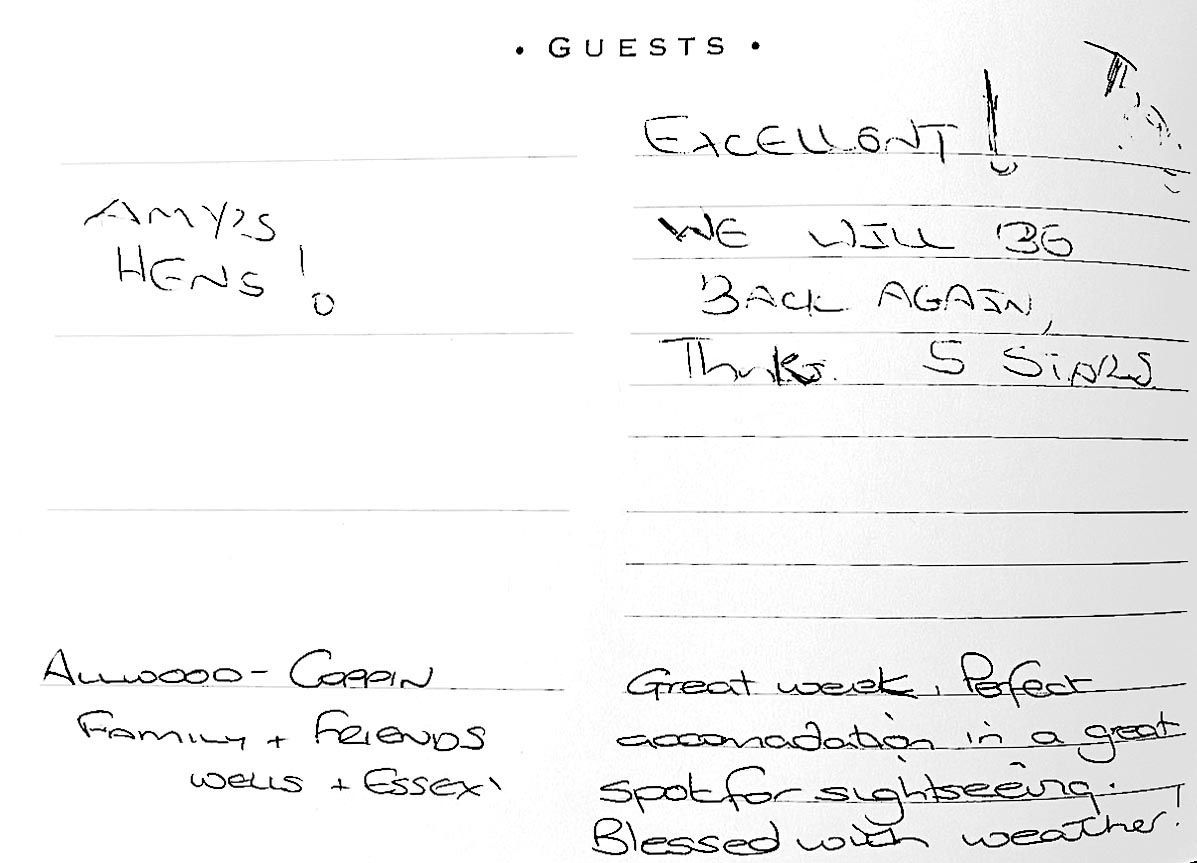 • GUESTS •
EXCELLENT!
AMY'S
HENS!
WE WILL BE
BACK AGAIN,
Thanks. 5 STARS
ALLWOOD - COPPIN
FAMILY + FRIENDS
WELLS + ESSEX
Great week. Perfect
accomadation in a great
spot for sightseeing.
Blessed with weather!